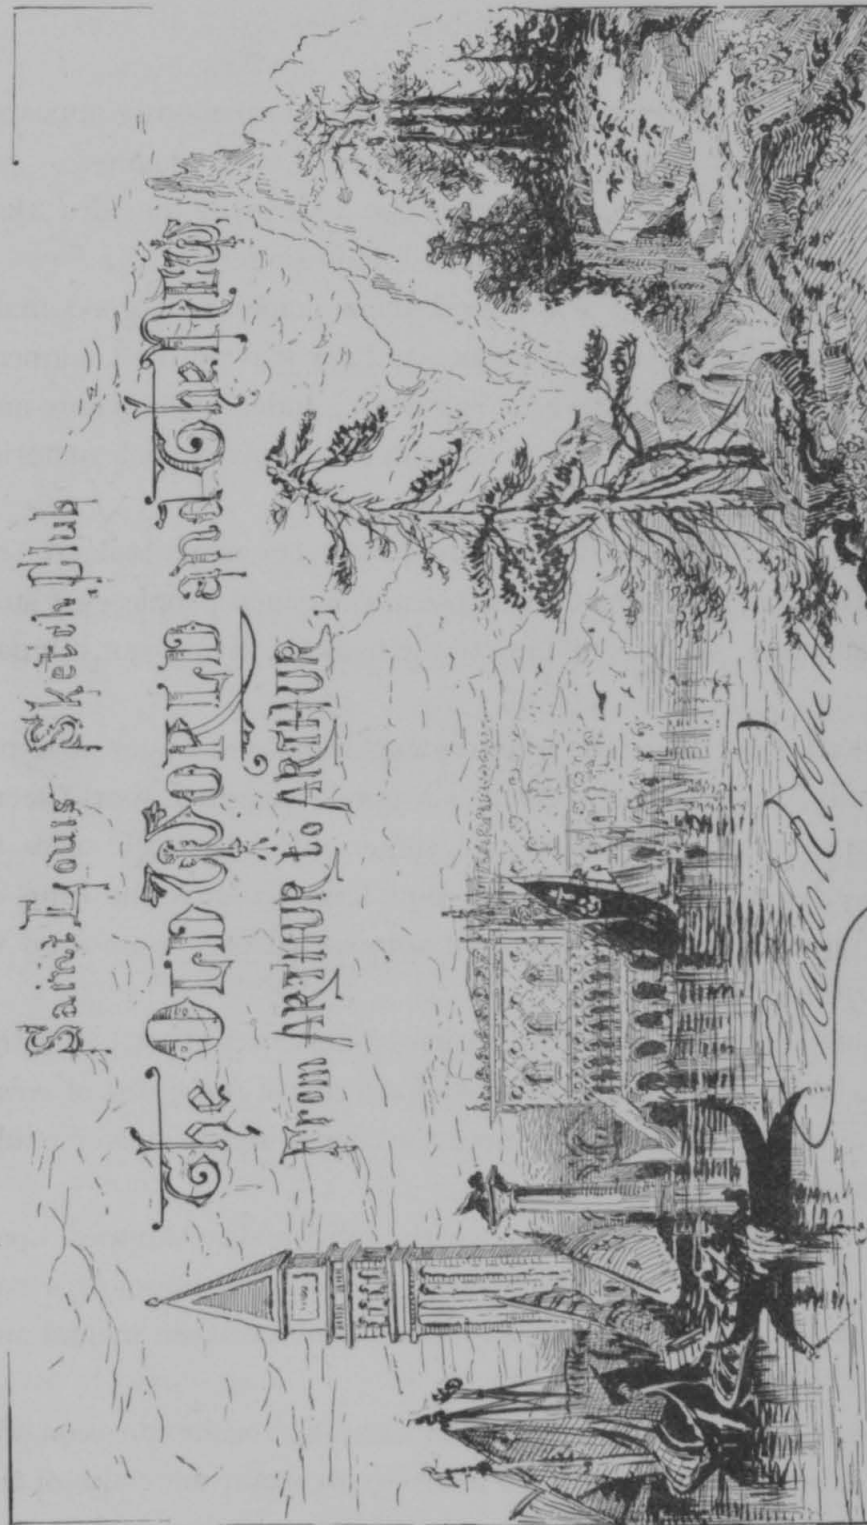 Saint Louis Sketch Club
The OLD WORLD and The NEW
From ARTHUR to ARTHUR,